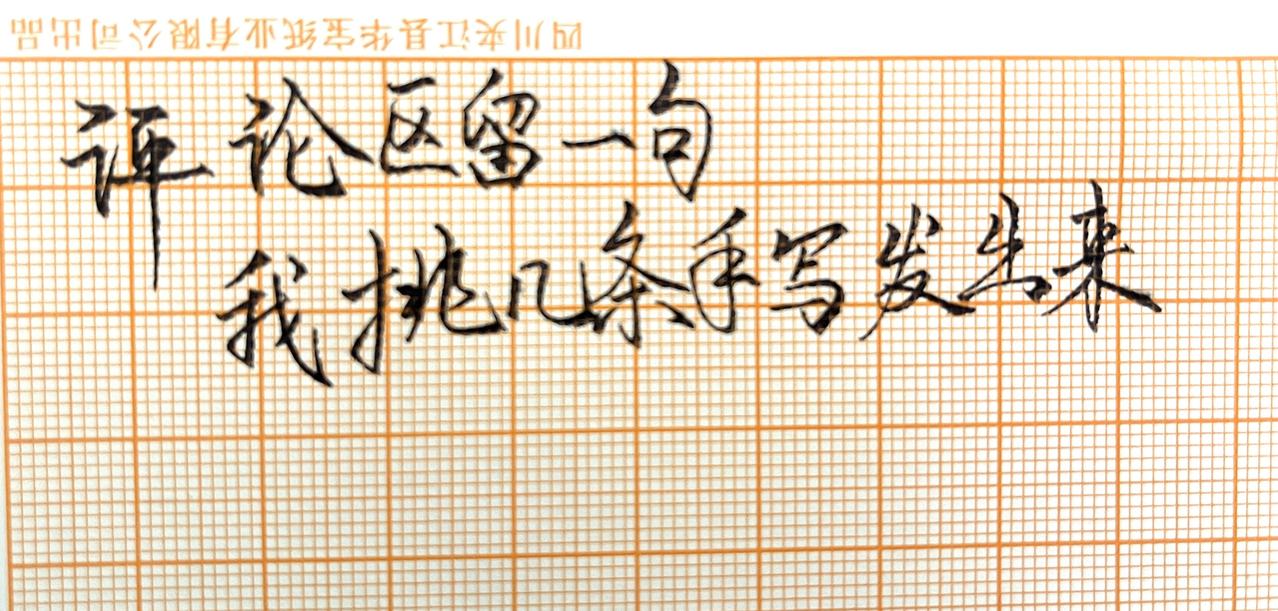 四川夹江县华宝纸业有限公司出品
评论区留一句
我挑几条手写发出来